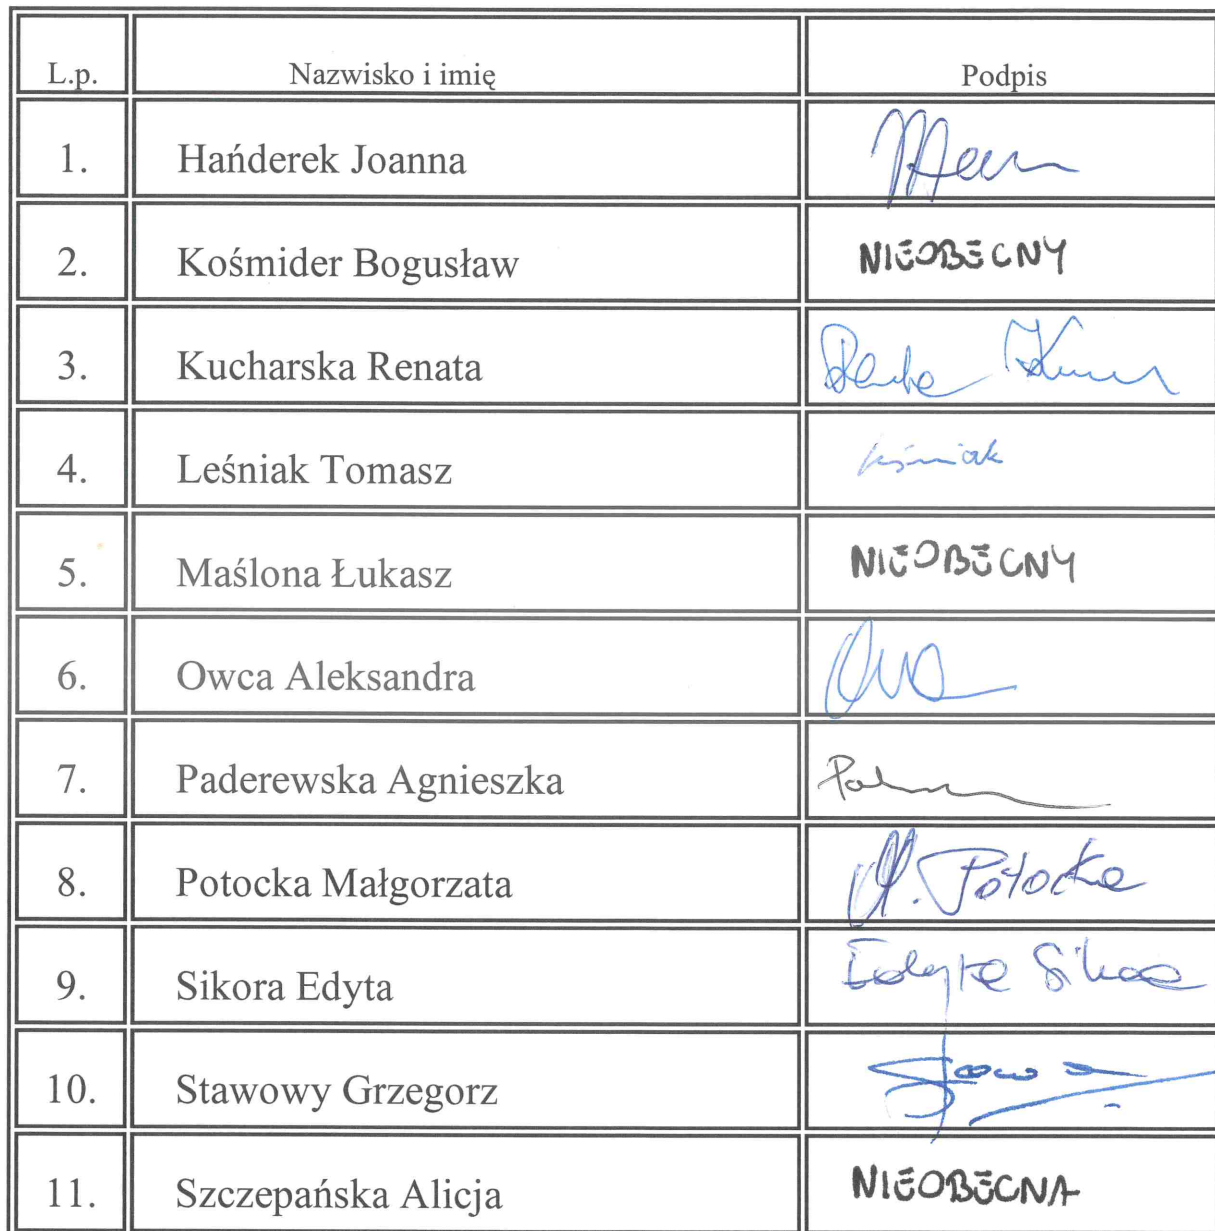 L.p. Nazwisko i imię Podpis
1. Hańderek Joanna
2. Kośmider Bogusław NIEOBECNY
3. Kucharska Renata
4. Leśniak Tomasz Leśniak
5. Maślona Łukasz NIEOBECNY
6. Owca Aleksandra
7. Paderewska Agnieszka
8. Potocka Małgorzata M. Potocka
9. Sikora Edyta Edyta Sikora
10. Stawowy Grzegorz
11. Szczepańska Alicja NIEOBECNA